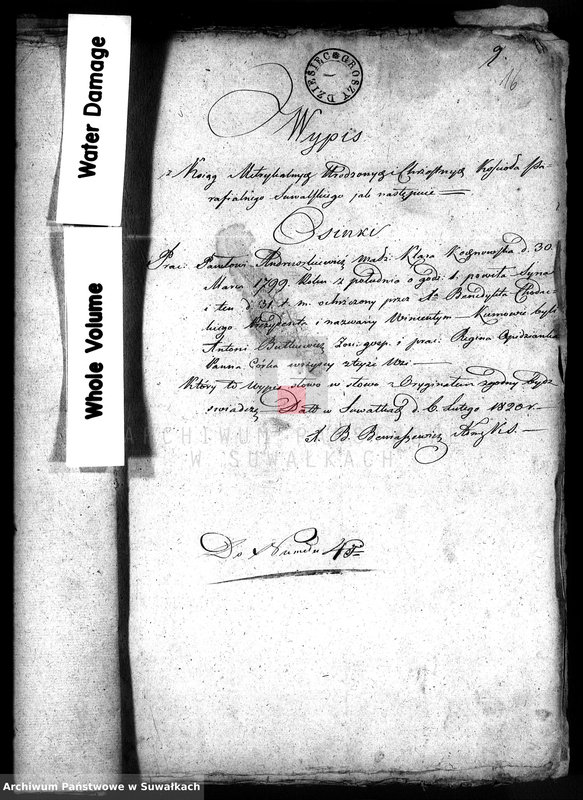 Water Damage
Whole Volume
DZIESIĘC GROSZY
9.
16
Wypis
z Xiąg Metrykalnych Urodzonych i Chrzestnych Kościoła Pa-
rafialnego Suwalskiego jak następuie
Osinki
Prac: Pawłowi Andruszkiewicz małż: Klara d. 30
Marca 1799 Roku z południa o godz. 1. powiła Syna
i ten d. 31 t. m. ochrzczony przez Xa Benedykta
Prepozyta i nazwany Wincentym Kumowie byli
Antoni Butkiewicz gosp. i prac: Regina
Panna Córka wszyscy z teyże Wsi
Który to Wypis słowo w słowo z Oryginałem zgodny bydź
świadczę Datt w Suwałkach d. 6. Lutego 1820 r.
X. B.
Do Numeru 45
ARCHIWUM PAŃSTWOWE
W SUWAŁKACH
Archiwum Państwowe w Suwałkach